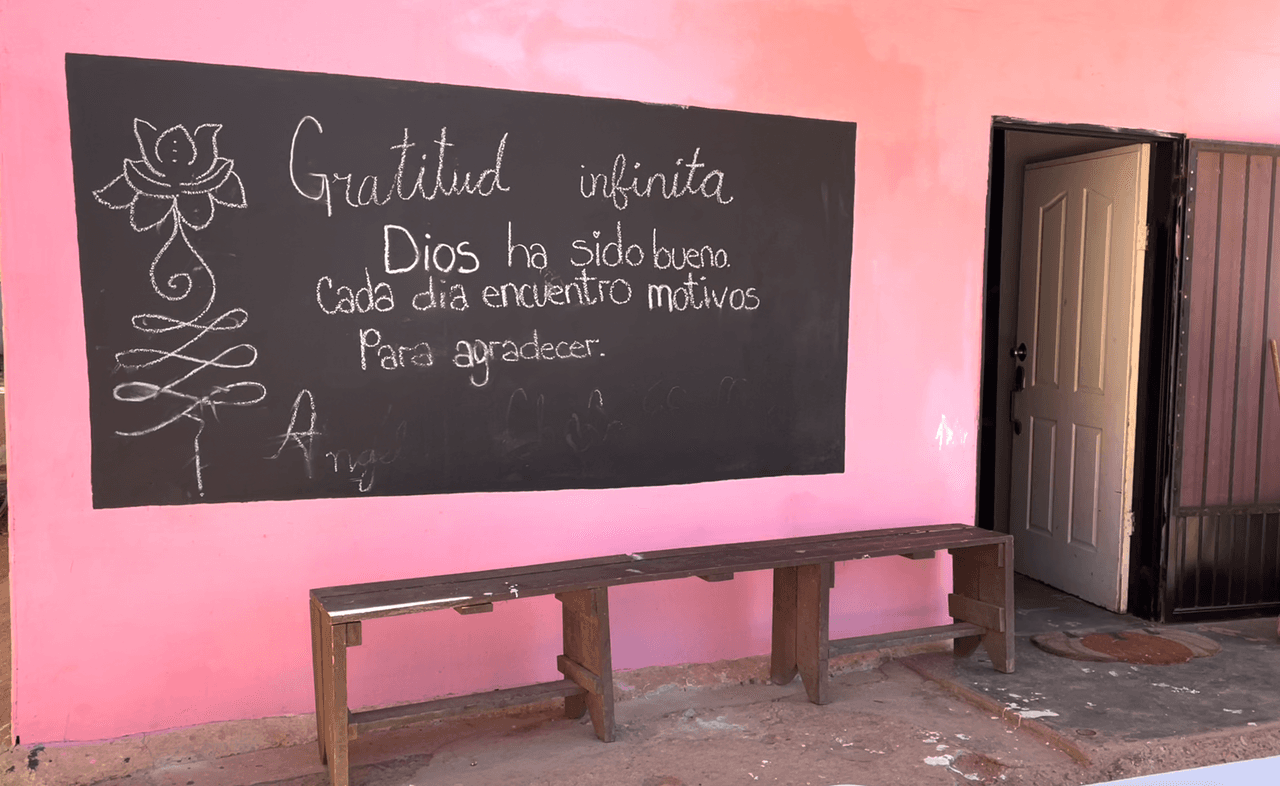 Gratitud infinita
Dios ha sido bueno.
Cada dia encuentro motivos
Para agradecer.